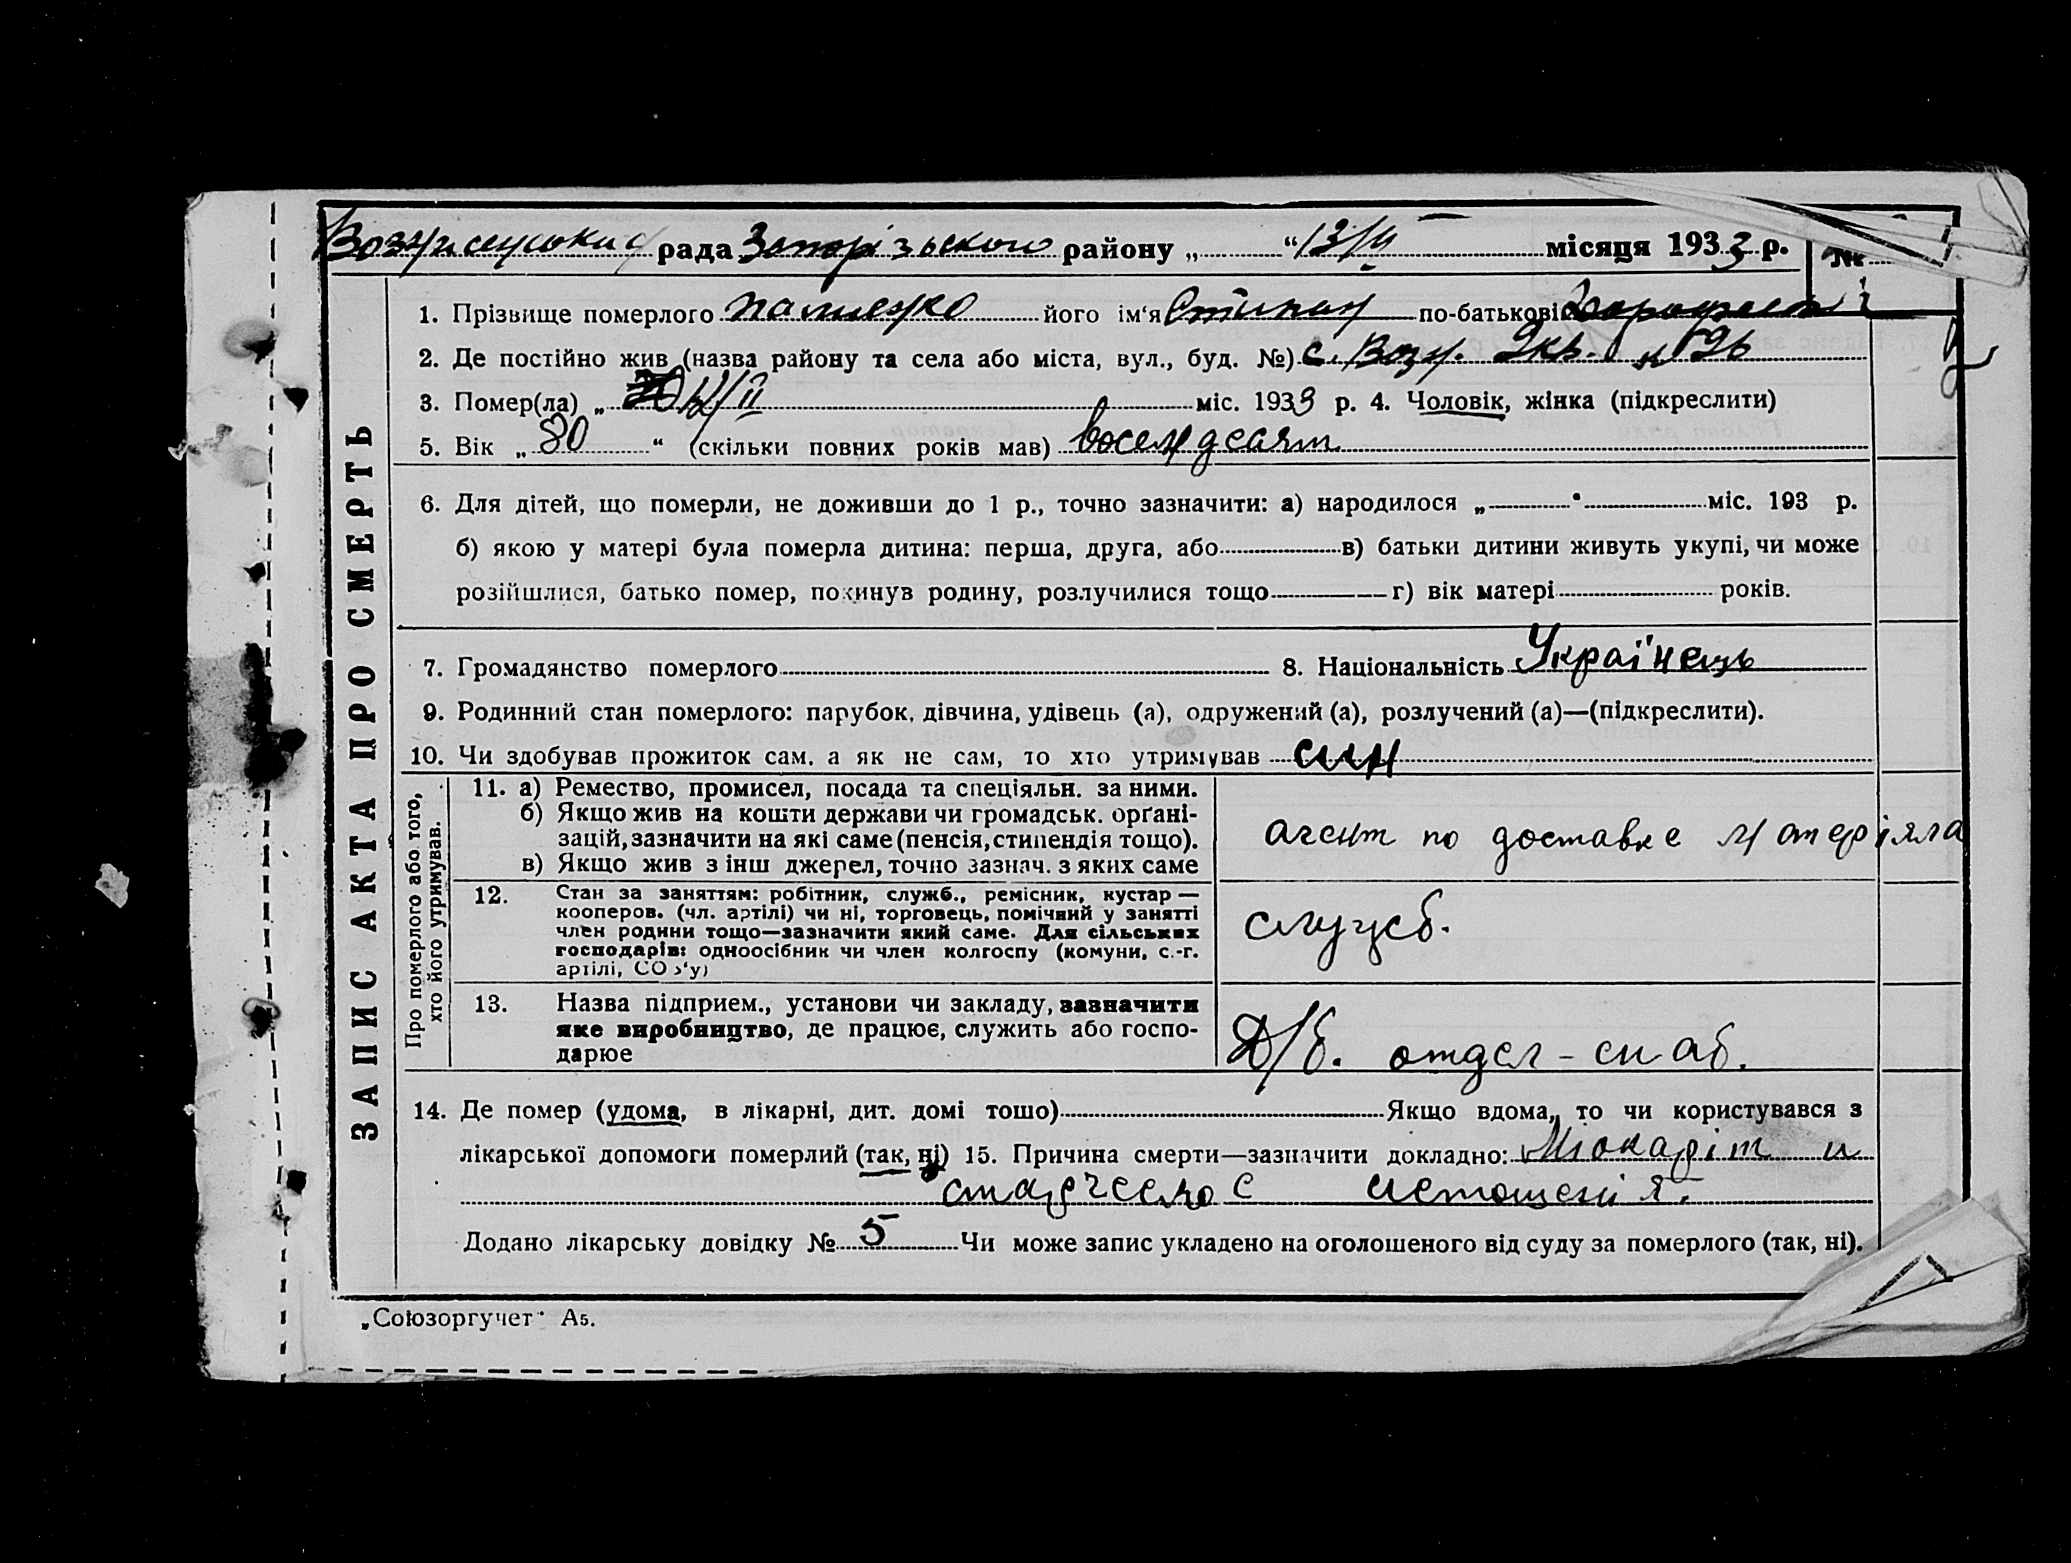 рада Запорізького району „ “ 13/II місяця 1933 р. №
ЗАПИС АКТА ПРО СМЕРТЬ
1. Прізвище померлого його ім‘я Степан по-батькові
2. Де постійно жив (назва району та села або міста, вул., буд. №) с. Возн. 2 кв. № 26
3. Помер(ла) „ 12/II міс. 1933 р. 4. Чоловік, жінка (підкреслити)
5. Вік „ 80 “ (скільки повних років мав) восемдесят
6. Для дітей, що померли, не доживши до 1 р., точно зазначити: а) народилося „ “ міс. 193 р.
б) якою у матері була померла дитина: перша, друга, або в) батьки дитини живуть укупі, чи може
розійшлися, батько помер, покинув родину, розлучилися тощо г) вік матері років.
7. Громадянство померлого 8. Національність Українець
9. Родинний стан померлого: парубок, дівчина, удівець (а), одружений (а), розлучений (а)—(підкреслити).
10. Чи здобував прожиток сам, а як не сам, то хто утримував син
Про померлого або того, хто його утримував.
11. а) Ремество, промисел, посада та спеціяльн. за ними.
б) Якщо жив на кошти держави чи громадськ. орґані-
зацій, зазначити на які саме (пенсія, стипендія тощо).
в) Якщо жив з інш джерел, точно зазнач. з яких саме
агент по доставке матеріяла
12. Стан за заняттям: робітник, служб., ремісник, кустар —
кооперов. (чл. артілі) чи ні, торговець, помічний у занятті
член родини тощо—зазначити який саме. Для сільських
господарів: одноосібник чи член колгоспу (комуни, с.-г.
артілі, СОЗ‘у)
служб.
13. Назва підприєм., установи чи закладу, зазначити
яке виробництво, де працює, служить або госпо-
дарюе
Д/б. отдел - снаб.
14. Де помер (удома, в лікарні, дит. домі тошо) Якщо вдома, то чи користувався з
лікарської допомоги померлий (так, ні) 15. Причина смерти—зазначити докладно: Міокардіт и
старческое истощенія.
Додано лікарську довідку № 5 Чи може запис укладено на оголошеного від суду за померлого (так, ні).
„Союзоргучет“ А5.